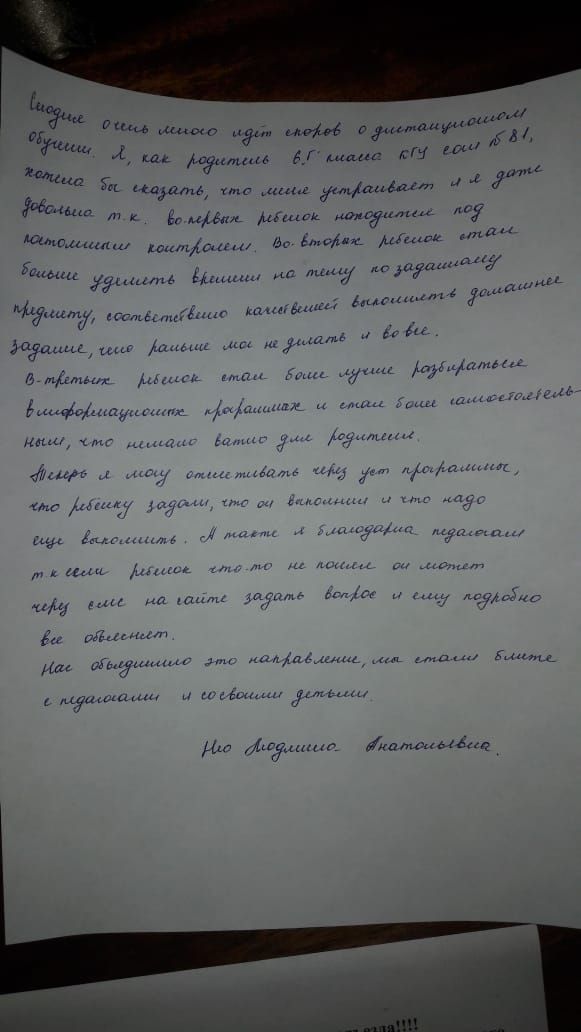 Сегодня очень много идёт споров о дистанционном
обучении. Я, как родитель 6 "Г" класса КГУ сош №81,
хотела бы сказать, что меня устраивает и я даже
довольна т.к. во-первых ребенок находится под
постоянным контролем. Во-вторых ребенок стал
больше уделять времени на тему по заданному
предмету, соответственно качественней выполнять домашнее
задание, чего раньше мог не делать и вовсе.
В-третьих ребенок стал более лучше разбираться
в информационных программах и стал более самостоятель-
ным, что немало важно для родителя.
Теперь я могу отслеживать через уст программы,
что ребёнку задали, что он выполнил и что надо
еще выполнить. А также я благодарна педагогам
т.к если ребенок что-то не понял он может
через смс на сайте задать вопрос и ему подробно
все объясняет.
Нас объединило это направление, мы стали ближе
с педагогами и со своими детьми.
Людмила Анатольевна.
езда!!!!